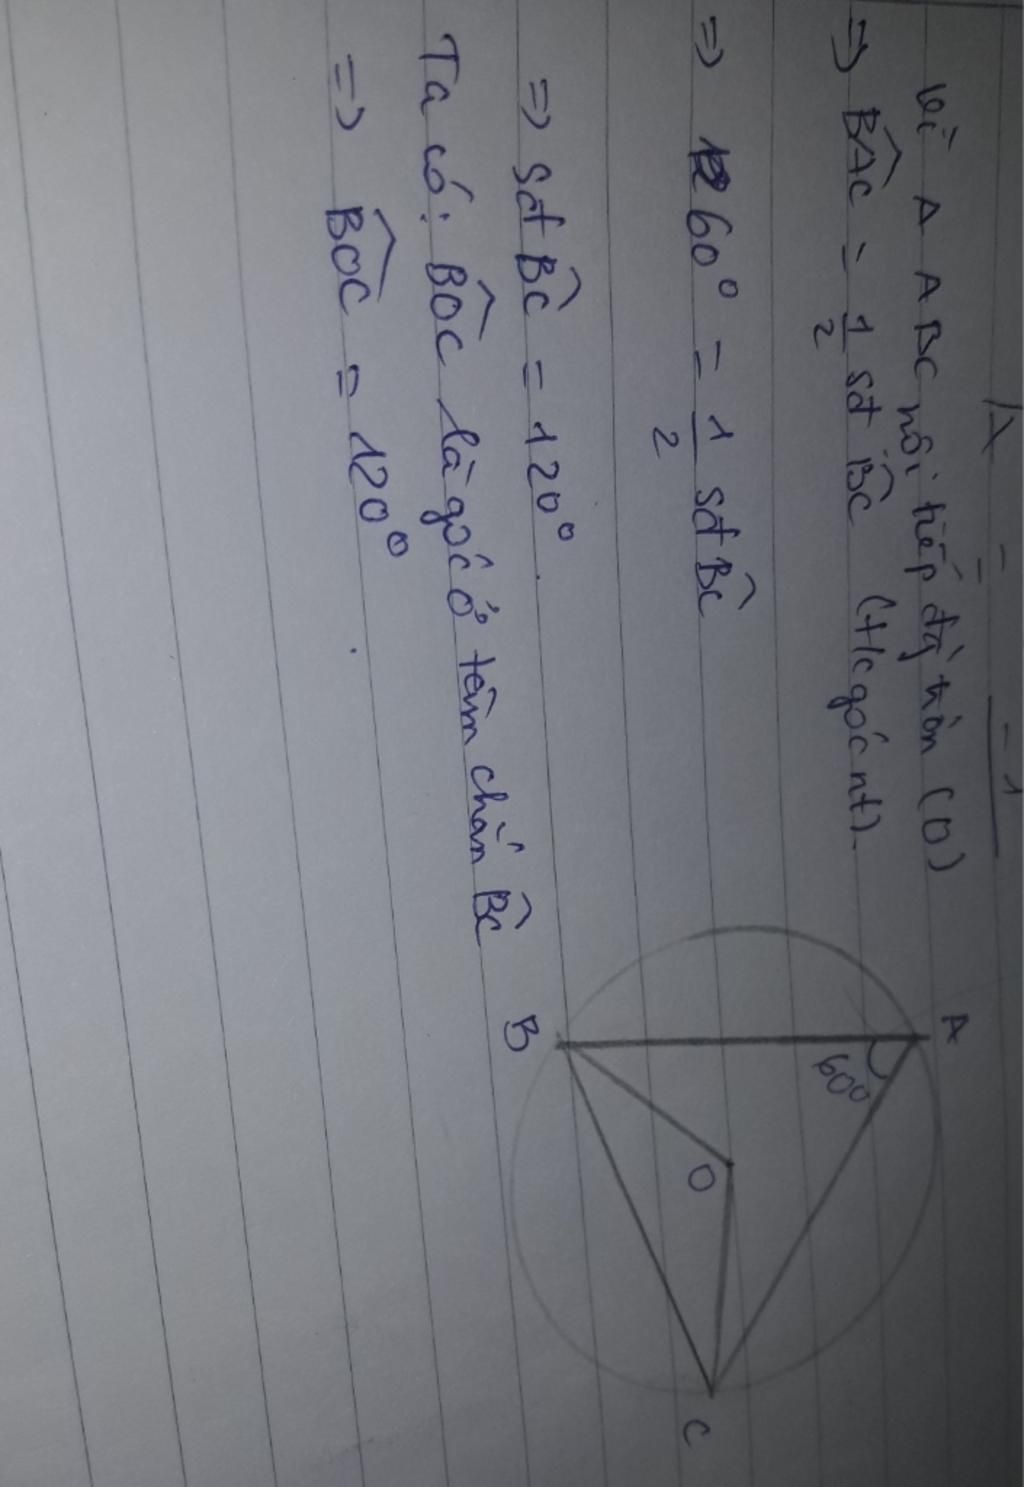 Vì Δ ABC nội tiếp đg tròn (O)
=> B̂AC = 1/2 sđ B̂C (t/c góc nt)
=> 60° = 1/2 sđ B̂C
=> sđ B̂C = 120°.
Ta có: B̂OC là góc ở tâm chắn B̂C
=> B̂OC = 120°.
A
60°
O
B
C